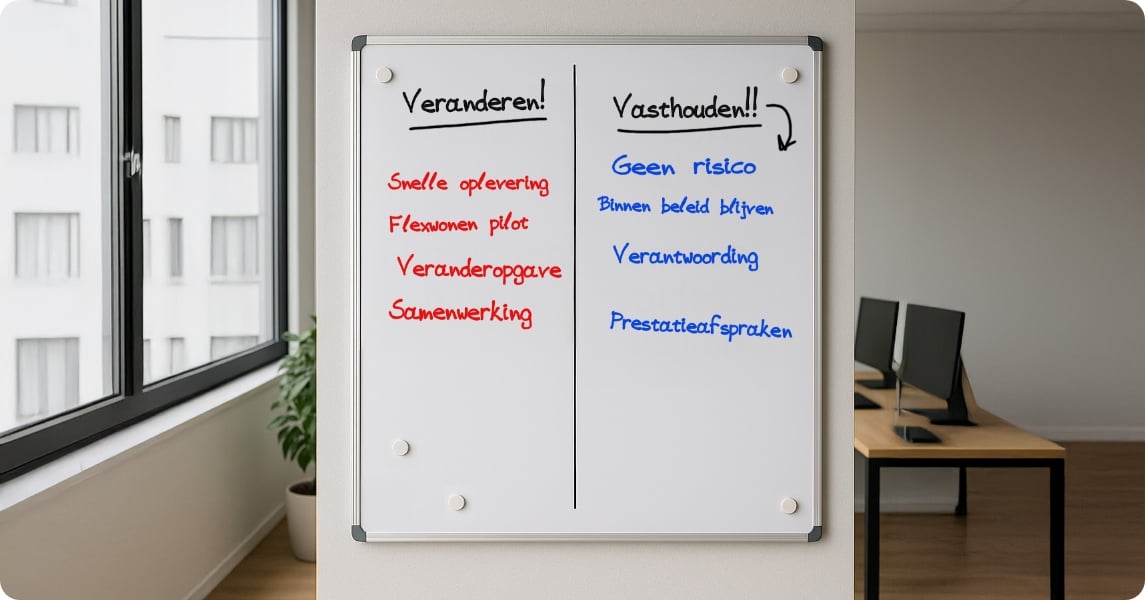 Veranderen!
Snelle oplevering
Flexwonen pilot
Veranderopgave
Samenwerking
Vasthouden!!
Geen risico
Binnen beleid blijven
Verantwoording
Prestatieafspraken